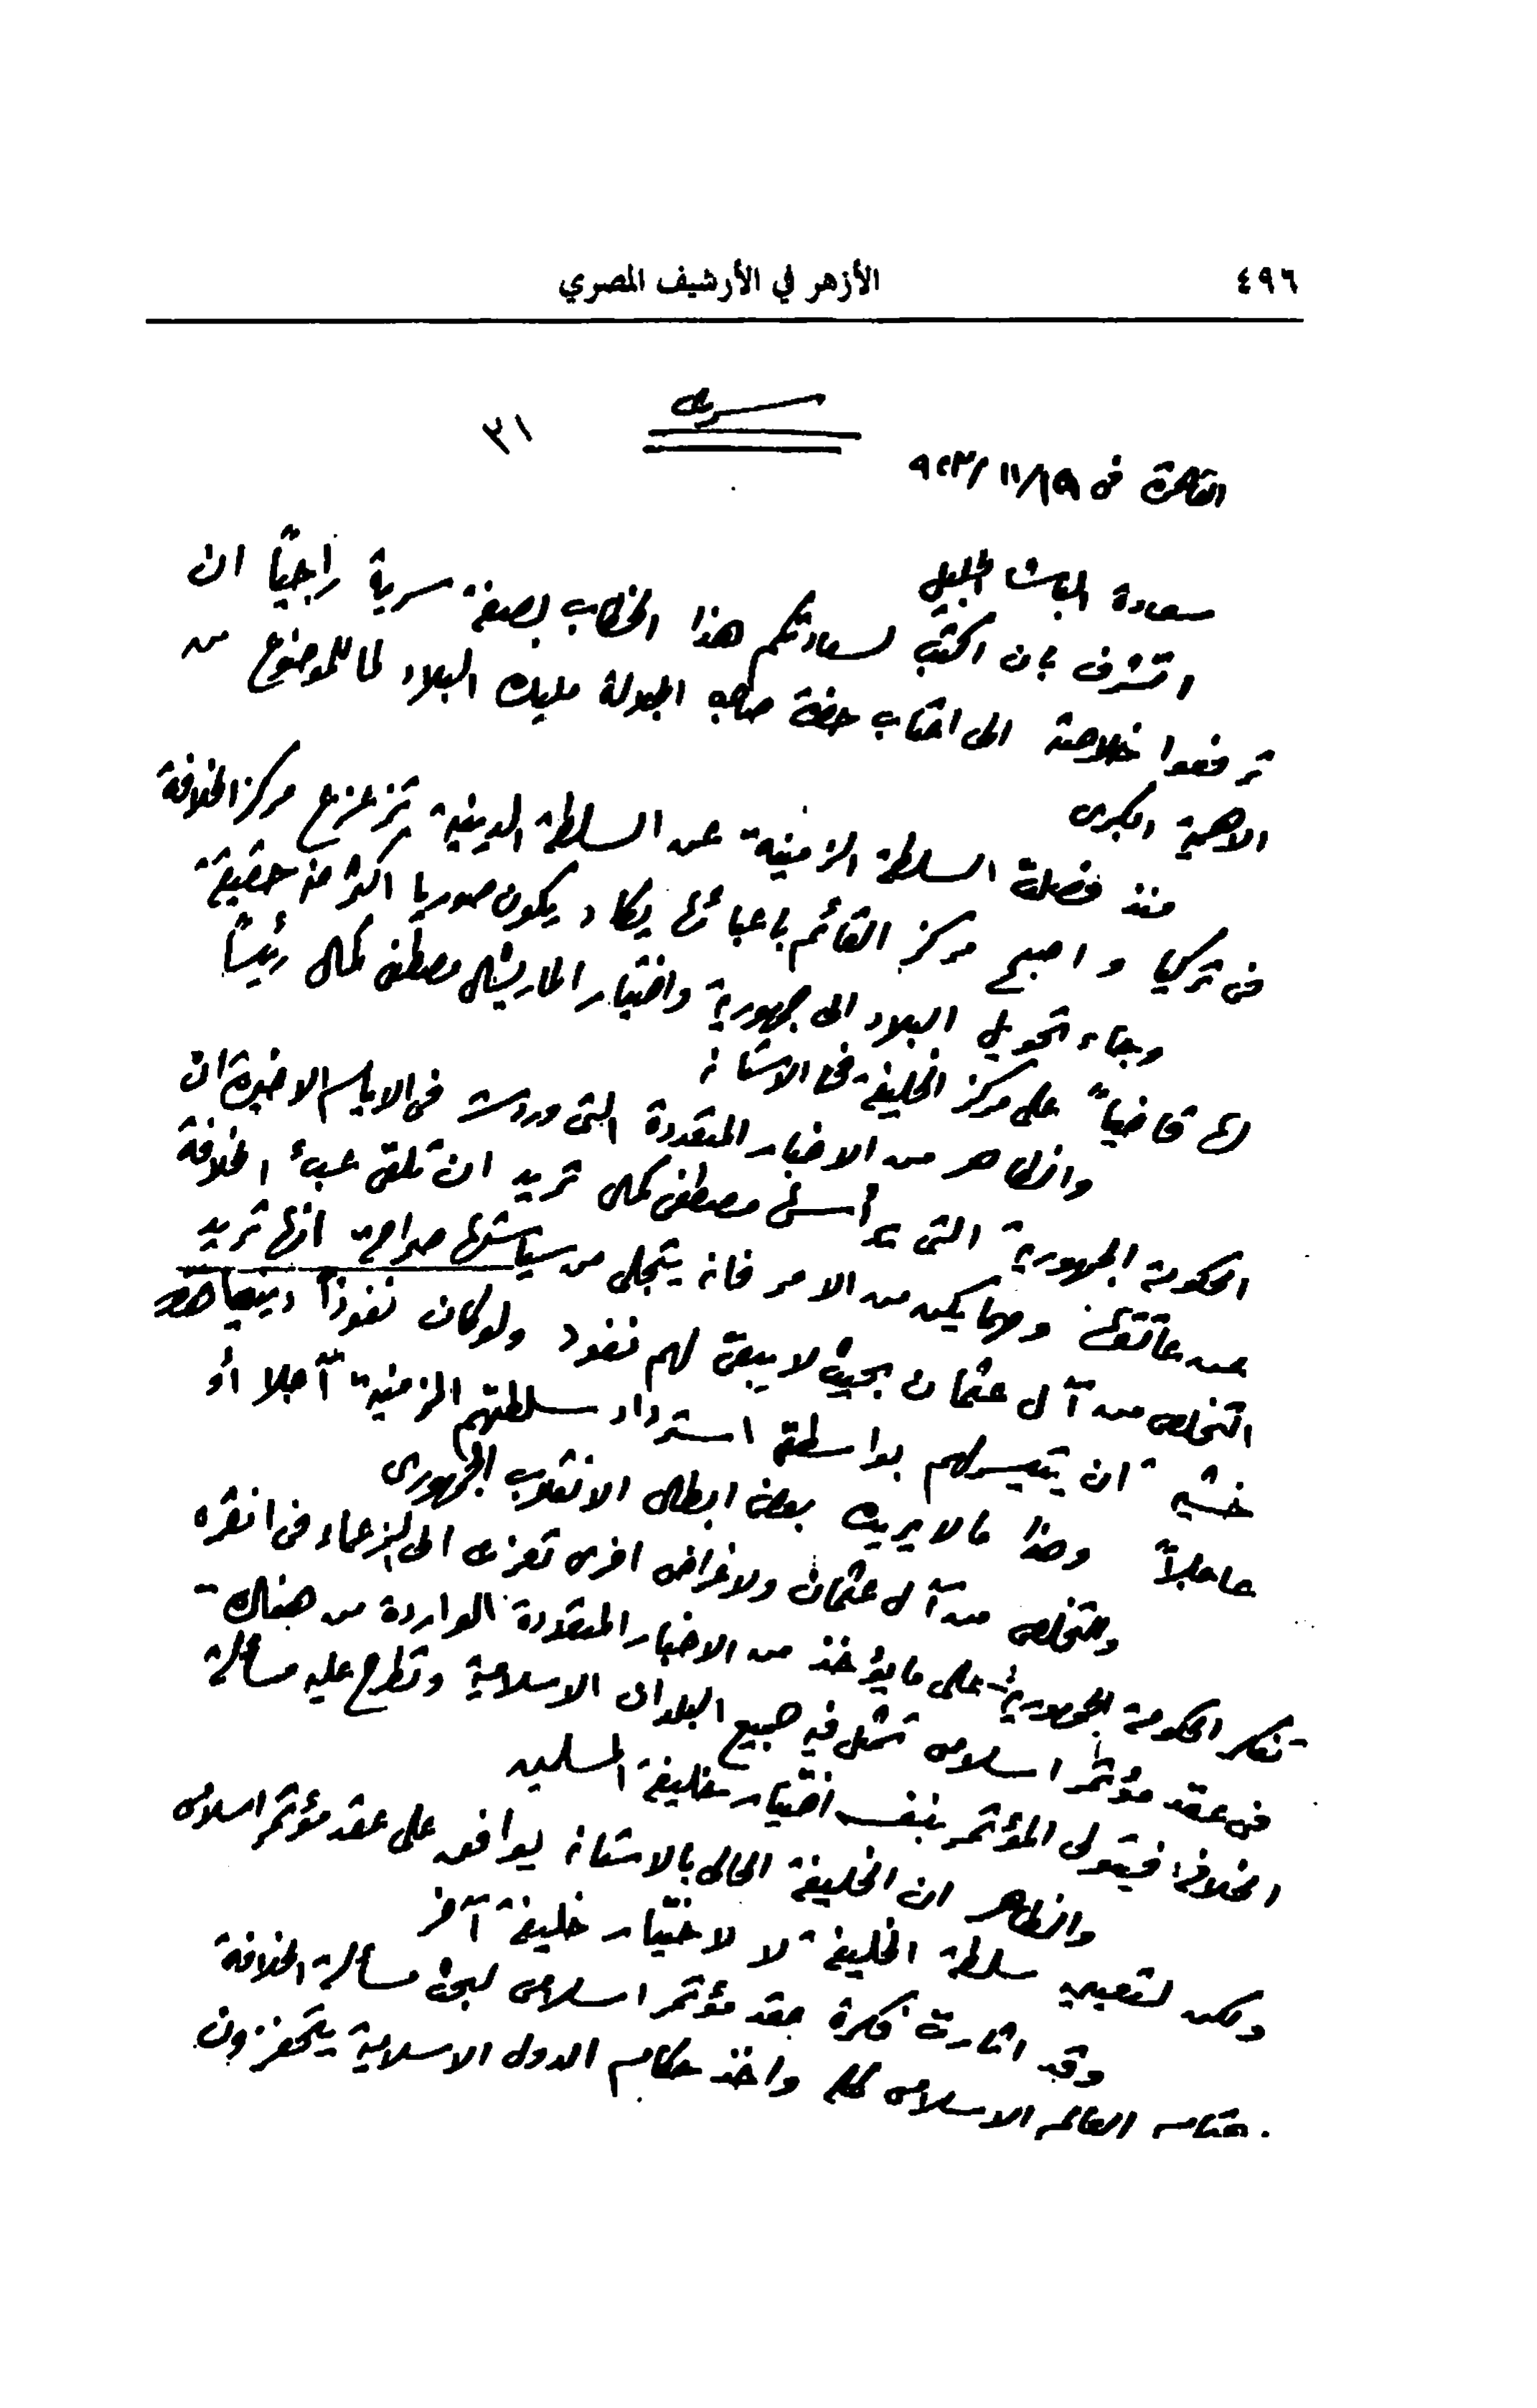 ٤٩٦
الأزهر في الأرشيف المصري
سريه
٣١
القاهرة في ١٩/ ١١/ ٩٢٣
سعادة الباشا الجليل
اتشرف بان اكتب لسعادتكم هذا الخطاب بصفة سرية راجيًا ان
ترفعوا خلاصته الى اعتاب حضرة صاحب الجلالة مليك البلاد لما للموضوع من
الاهمية الكبرى
منذ فصلت السلطة الزمنية عن السلطة الدينية تزعزع مركز الخلافة
في تركيا واصبح مركز القائم باعبائها يكاد يكون صوريا اكثر منه حقيقة
وجاء تحويل البلاد الى جمهورية واختيار الماريشال مصطفى كمال رئيسًا
لها قاضياً على مركز الخليفة في الاستانة
والظاهر من الاخبار المتعددة التي وردت في الايام الاخيرة ان
الحكومة الجمهورية التي يرأسها مصطفى كمال تريد ان تلقى عبء الخلافة
عن عاتقها ومهما يكن من الامر فانه يتجلى من سياستها صراحة انها تريد
التخلص من آل عثمان بحيث لا يبقى لهم نفوذ ولو كان نفوذاً دينيا
خشية ان يتيسر لهم بواسطته استرداد سلطتهم الزمنية آجلا أو
عاجلاً وهذا مالا يريده بعض ابطال الانقلاب الجمهورى
وللتخلص من آل عثمان ولاغراض اخرى تعزى الى الزعماء في انقره
تفكر الحكومة الجمهورية على ما يؤخذ من الاخبار المتعددة الواردة من هناك
في عقد مؤتمر اسلامى تمثل فيه جميع البلدان الاسلامية وتطرح عليه مسألة
الخلافة فيتولى المؤتمر بنفسه اختيار خليفة المسلمين
والظاهر ان الخليفة الحالى بالاستانة يوافق على عقد مؤتمر اسلامى
ولكن لتعيين سلطة الخليفة لا لاختيار خليفة آخر
وقد اثارت فكرة عقد مؤتمر اسلامى لبحث مسألة الخلافة
العالم الاسلامى كله واخذ حكام الدول الاسلامية يتحفزون